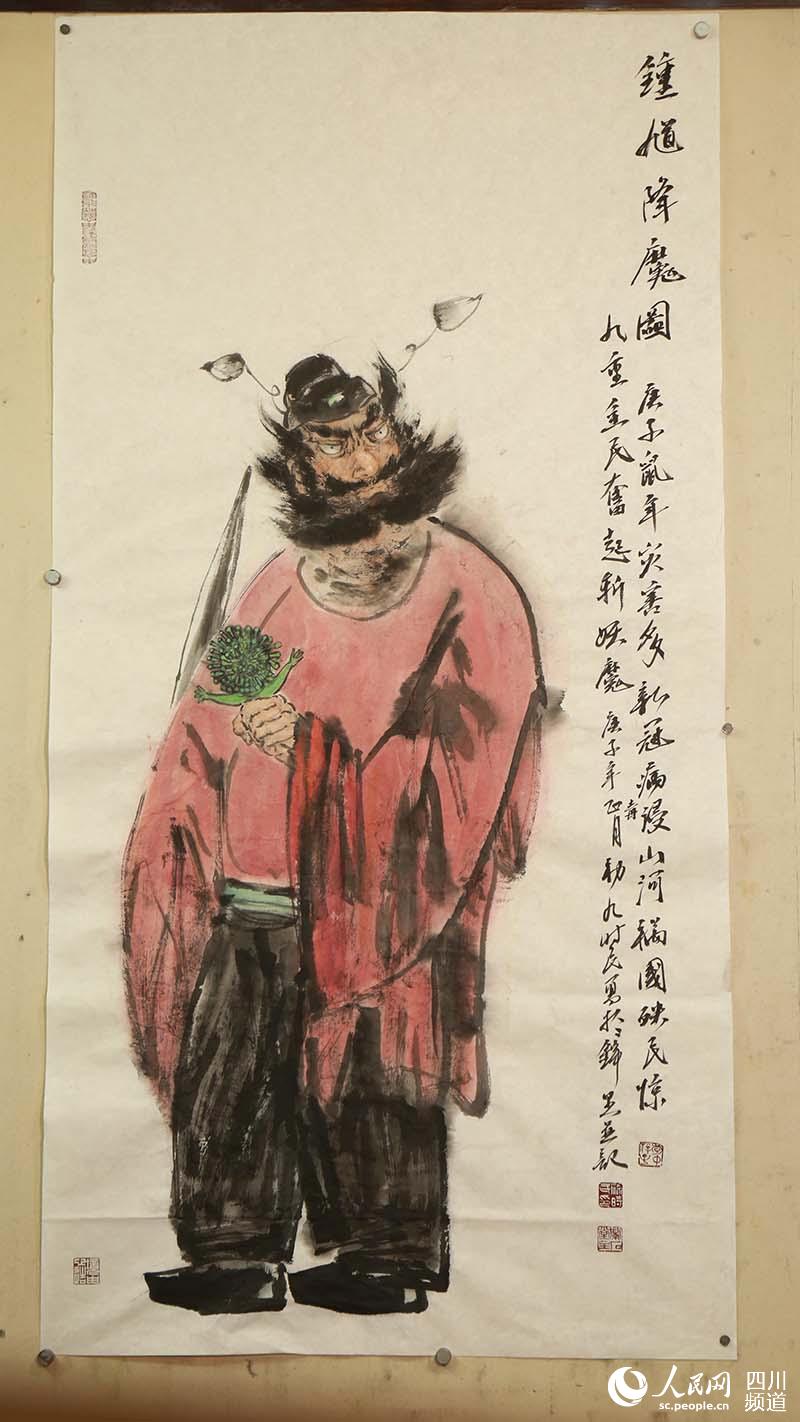 鍾馗降魔圖 庚子鼠年災害多新冠病毒侵山河禍國殃民惊
九重全民奮起斬妖魔 庚子年正月初九時民写於
人民网 四川
sc.people.cn 频道